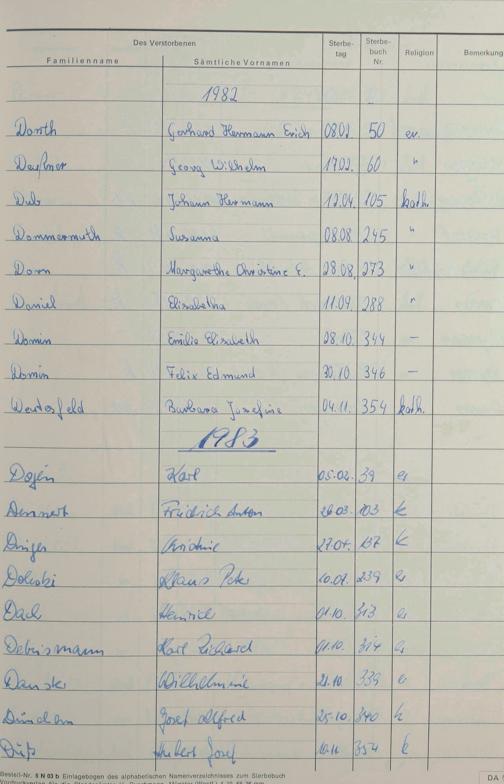 Des Verstorbenen Sterbe- tag Sterbe- buch Nr. Religion Bemerkung
Familienname Sämtliche Vornamen
1982
Dorth Gerhard Hermann Erich 08.02. 50 ev.
Deyßner Georg Wilhelm 17.02. 60 "
Dub Johann Hermann 12.04. 105 kath.
Dommermuth Susanna 08.08. 245 "
Dorn Margarethe Christine E. 28.08. 273 "
Daniel Elisabetha 11.09. 288 "
Domin Emilie Elisabeth 28.10. 344 –
Domin Felix Edmund 30.10. 346 –
Barbara Josefine 04.11. 354 kath.
1983
Karl 05.02. 39 e
Dennert Friedrich Anton 26.03. 103 k
27.04. 137 k
Klaus Peter 10.07. 239 e
Dach Heinrich 01.10. 313 e
Karl Richard 01.10. 314 e
Wilhelmine 21.10. 339 e
Josef Alfred 25.10. 340 k
Duß Hubert Josef 354 k
Bestell-Nr. 8 N 03 b Einlagebogen des alphabetischen Namenverzeichnisses zum Sterbebuch
DA